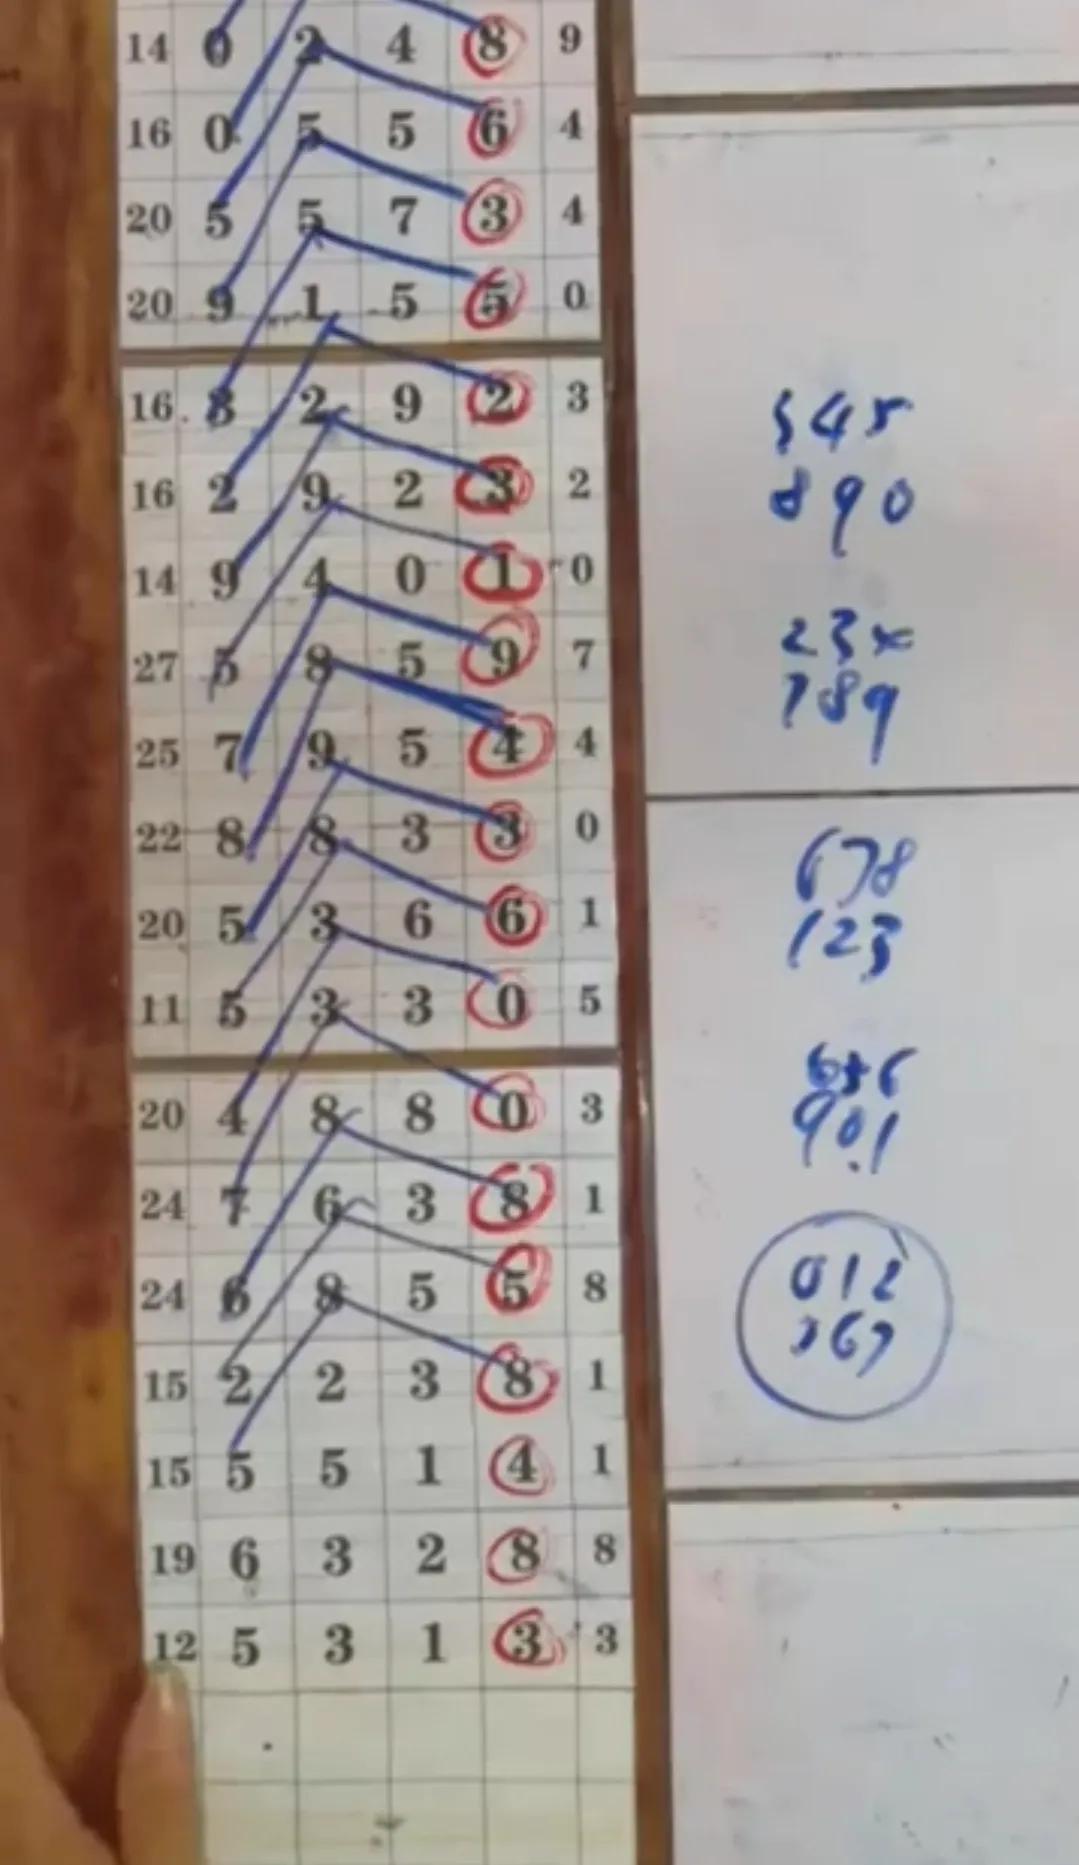 14 0 2 4 8 9
16 0 5 5 6 4
20 5 5 7 3 4
20 9 1 5 5 0
16 8 2 9 2 3
16 2 9 2 3 2
14 9 4 0 1 0
27 5 8 5 9 7
25 7 9 5 4 4
22 8 8 3 3 0
20 5 3 6 6 1
11 5 3 3 0 5
20 4 8 8 0 3
24 7 6 3 8 1
24 6 8 5 5 8
15 2 2 3 8 1
15 5 5 1 4 1
19 6 3 2 8 8
12 5 3 1 3 3
345
890
23
789
678
123
901
012